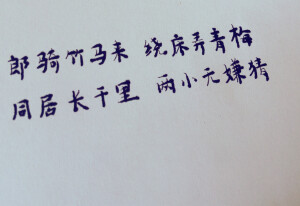 郎骑竹马来 绕床弄青梅
同居长千里 两小无嫌猜